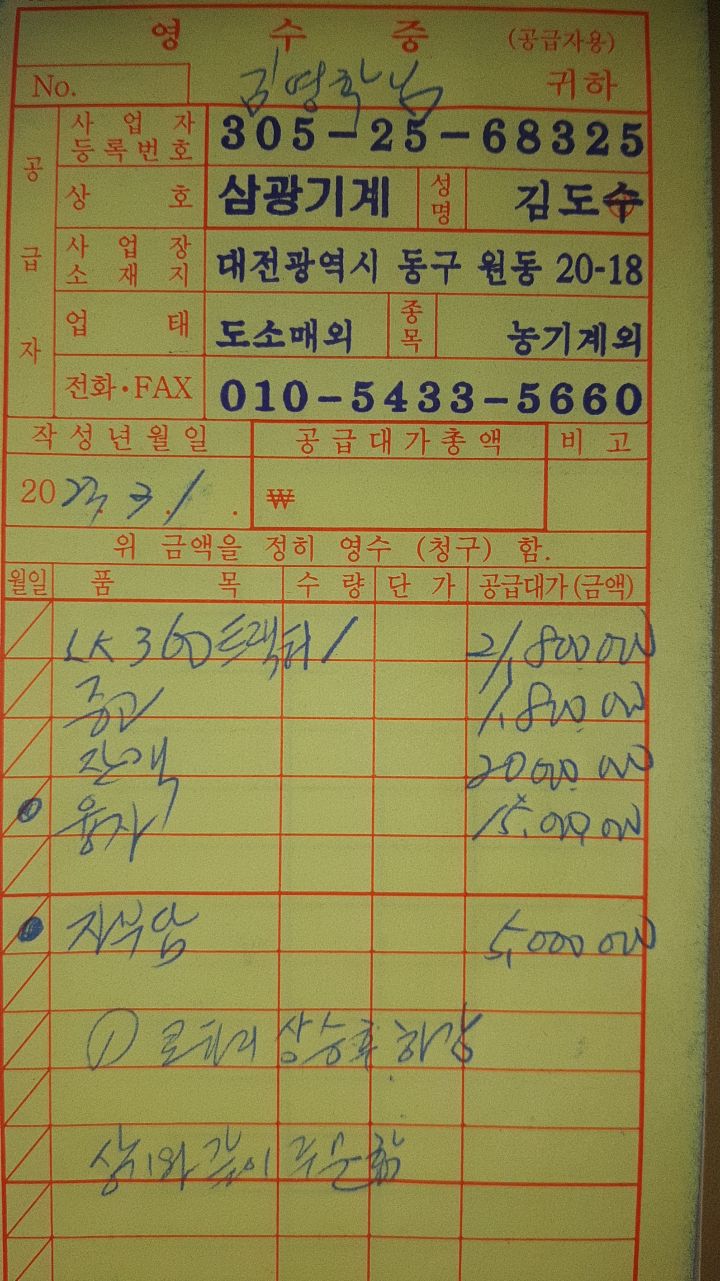 영 수 증 (공급자용)
No. 김영학님 귀하
공급자
사업자등록번호 305-25-68325
상호 삼광기계 성명 김도수
사업장소재지 대전광역시 동구 원동 20-18
업태 도소매외 종목 농기계외
전화·FAX 010-5433-5660
작성년월일 공급대가총액 비고
20 23. 3. 1 . ₩
위 금액을 정히 영수 (청구) 함.
월일 품목 수량 단가 공급대가(금액)
LK360트랙터 1 21,800 000
중고 1,800. 000
잔액 20000. 000
융자 15,000. 000
자부담 5,000 000
① 로타리 상승후 하강
상기와 같이 주문함